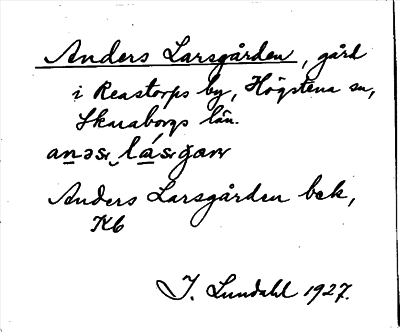 Anders Larsgården, gård
i Reastorps by, Högstena sn,
Skaraborgs län.
Anders Larsgården bek,
Kb
I. Lundahl 1927.